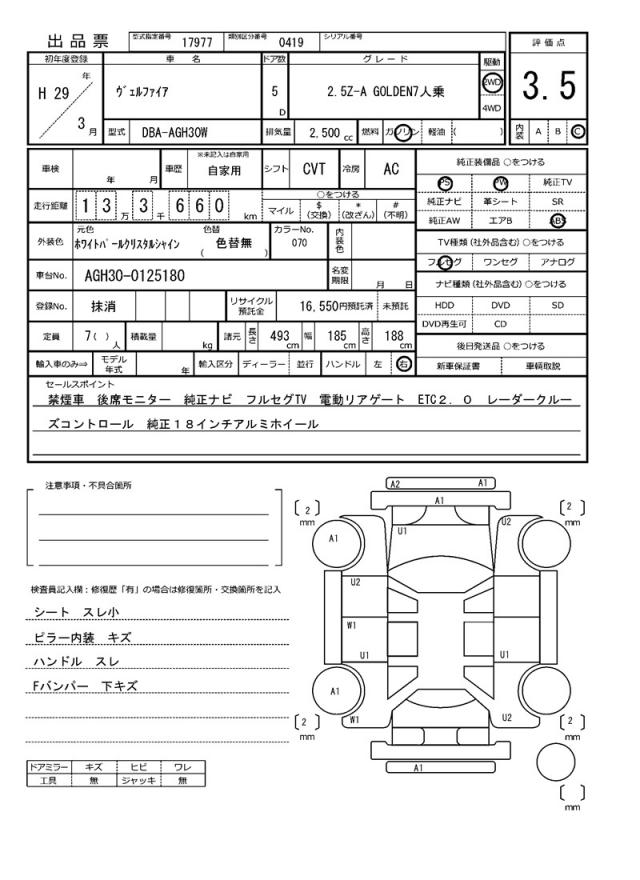 出品票
型式指定番号 17977 類別区分番号 0419 シリアル番号
初年度登録 車名 ドア数 グレード 駆動 評価点
H 29 年 3 月
ヴェルファイア
5 D
2.5Z-A GOLDEN7人乗
2WD
4WD
3.5
型式 DBA-AGH30W 排気量 2,500 cc 燃料 ガソリン 軽油 ( )
内装 A B C
車検 年 月 車歴 ※未記入は自家用 自家用 シフト CVT 冷房 AC
純正装備品 ○をつける
PS PW 純正TV
純正ナビ 革シート SR
純正AW エアB ABS
走行距離 1 3 万 3 千 6 6 0 km
○をつける
マイル $(交換) *(改ざん) #(不明)
外装色 元色 ホワイトパールクリスタルシャイン 色替 ( 色替無 ) カラーNo. 070 内装色
TV種類 (社外品含む) ○をつける
フルセグ ワンセグ アナログ
車台No. AGH30-0125180 名変期限 月 日
ナビ種類 (社外品含む) ○をつける
HDD DVD SD
DVD再生可 CD
登録No. 抹消 リサイクル預託金 16,550円預託済 未預託
定員 7( ) 人 積載量 kg 諸元 長さ 493 cm 幅 185 cm 高さ 188 cm
後日発送品 ○をつける
新車保証書 車輌取説
輸入車のみ⇒ モデル年式 年 輸入区分 ディーラー 並行 ハンドル 左 右
セールスポイント
禁煙車 後席モニター 純正ナビ フルセグTV 電動リアゲート ETC2.0 レーダークルー
ズコントロール 純正18インチアルミホイール
注意事項・不具合箇所
検査員記入欄:修復歴「有」の場合は修復箇所・交換箇所を記入
シート スレ小
ピラー内装 キズ
ハンドル スレ
Fバンパー 下キズ
ドアミラー キズ ヒビ ワレ
工具 無 ジャッキ 無
A2 A1
A1
2 mm
2 mm
A1
U1
U2
U2
W1
U1
U1
A1
W1
U2
2 mm
2 mm
A1
mm